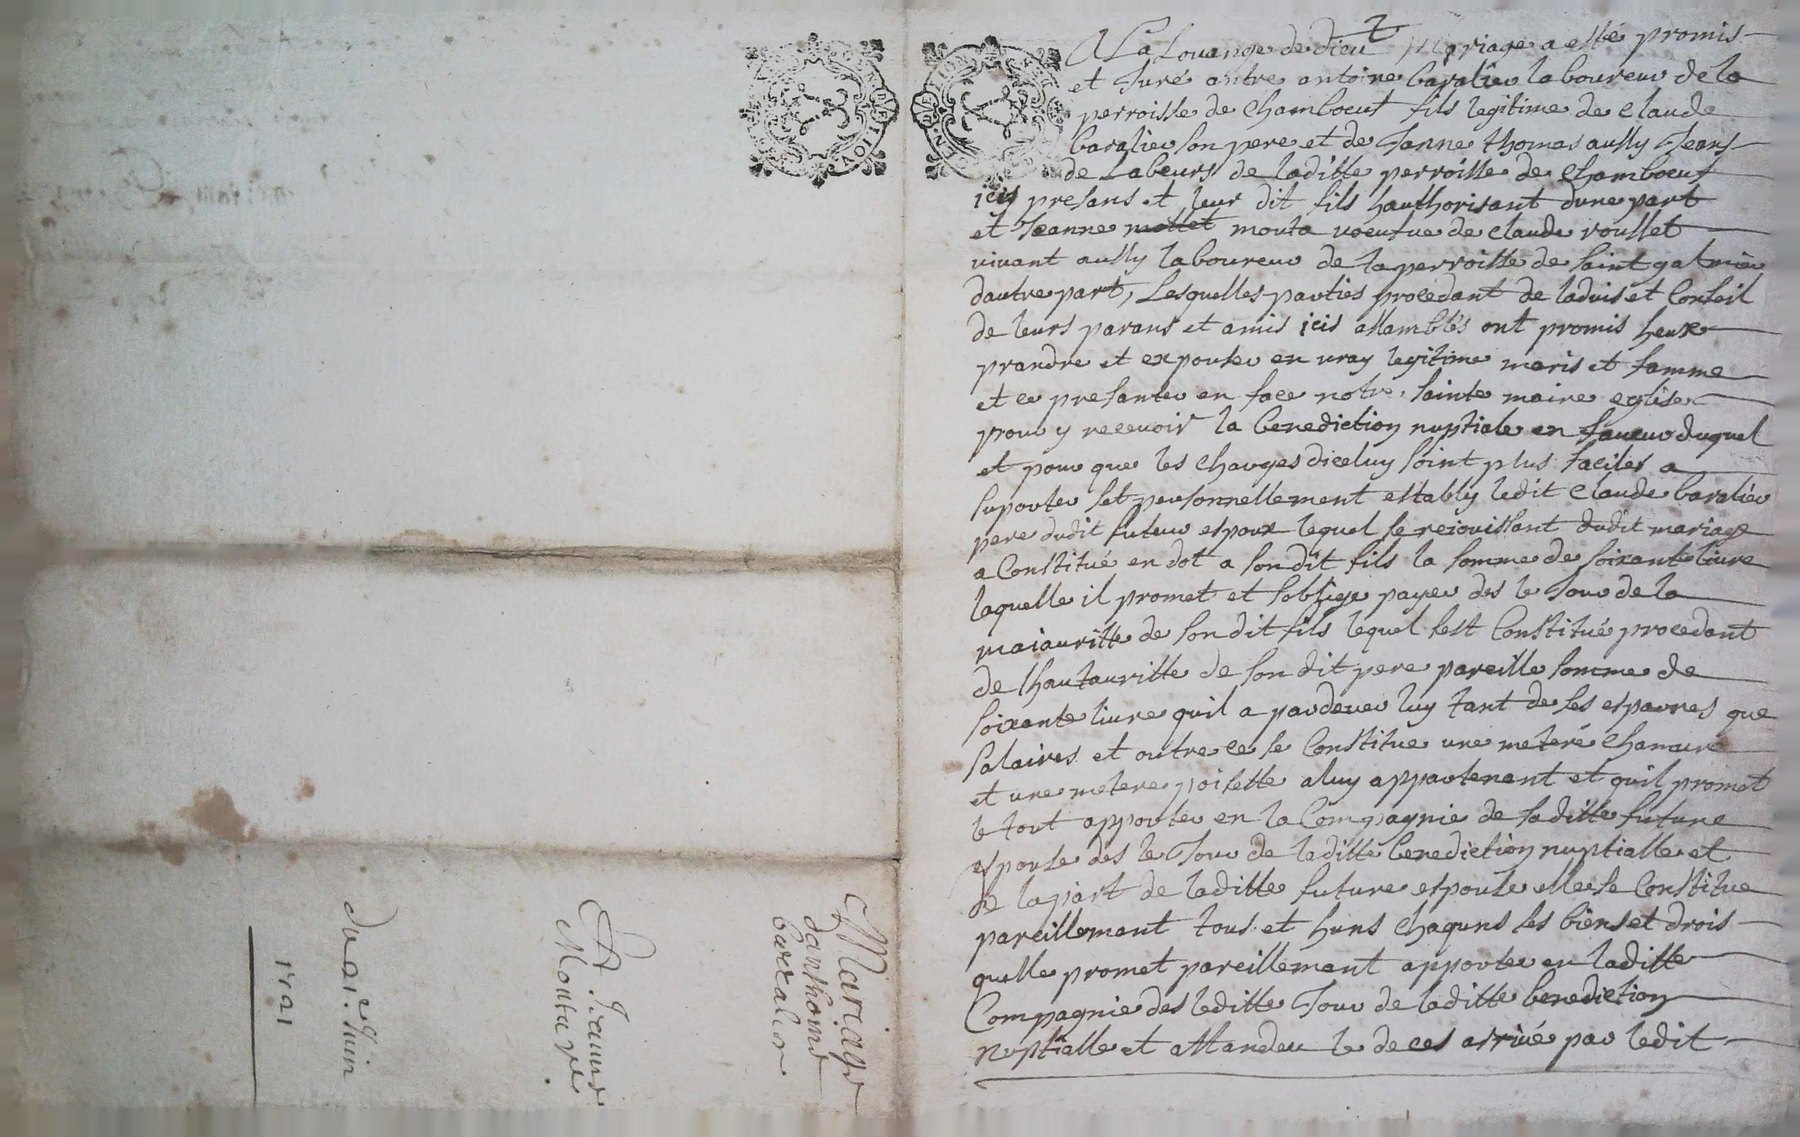 A La Louange de dieu Mariage a esté promis
et Juré antre antoine baralier laboureur de la
perroisse de Chamboeuf fils legitime de Claude
baralier son pere et de Janne thomas aussy Jeans
de Labeurs de laditte perroisse de Chamboeuf
icis presans et leur dit fils hauthorisant dune part
et Jeanne mottet mouta voeufue de Claude rousset
vivant aussy laboureur de la perroisse de saint galmier
dautre part, Lesquelles parties procedant de laduis et Conseil
de leurs parans et amis icis assamblés ont promis heux
prandre et expouser en vray legitime maris et famme
et ce presanter en face notre sainte maire eglise
pour y recevoir la benediction nuptiale en faveur duquel
et pour que les charges diceluy soint plus faciles a
suporter set personnellement estably ledit Claude baralier
pere dudit futeur espoux lequel se rejouissant dudit mariage
a Constitué en dot a son dit fils la somme de soixante livre
laquelle il promet et soblige payer des le Jour de la
maiauritte de son dit fils lequel sest Constitué procedant
de lhautauritte de son dit pere pareille somme de
soixante livre quil a pardever luy tant de ses esparnes que
salaires et outre ce se Constitue une meteré chanure
et une metere poisette a luy appartenant et quil promet
le tout apporter en la Compagnie de sa ditte future
espouse des le Jour de leditte benediction nuptialle et
de la part de laditte future espouse elle se Constitue
pareillemant tous et huns chaquns ses biens et drois
quelle promet pareillemant apporter en laditte
Compagnie des leditte Jour de laditte benediction
nuptialle et attandeu le deces arrivé par ledit
Mariage
danthoine
baralier
A Jeanne
Moutare
du 2i.e Juin
1721